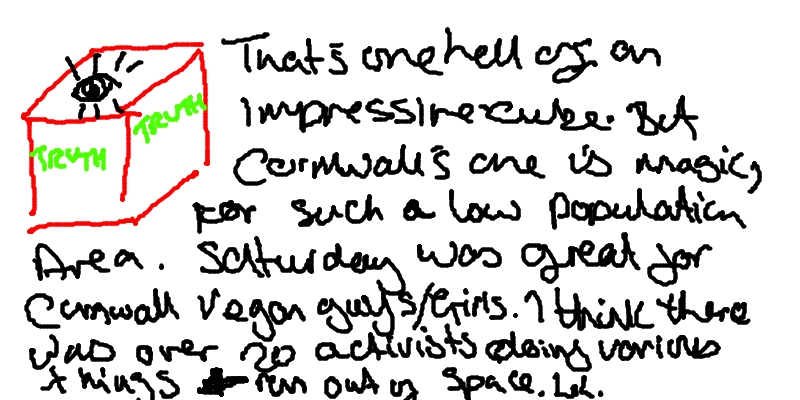 TRUTH
TRUTH
That's one hell of an
impressive cube. But
Cornwall's one is magic,
For such a low population
Area. Saturday was great for
Cornwall Vegan guys/Girls. I think there
was over 20 activists doing various
things run out of space. Lol.